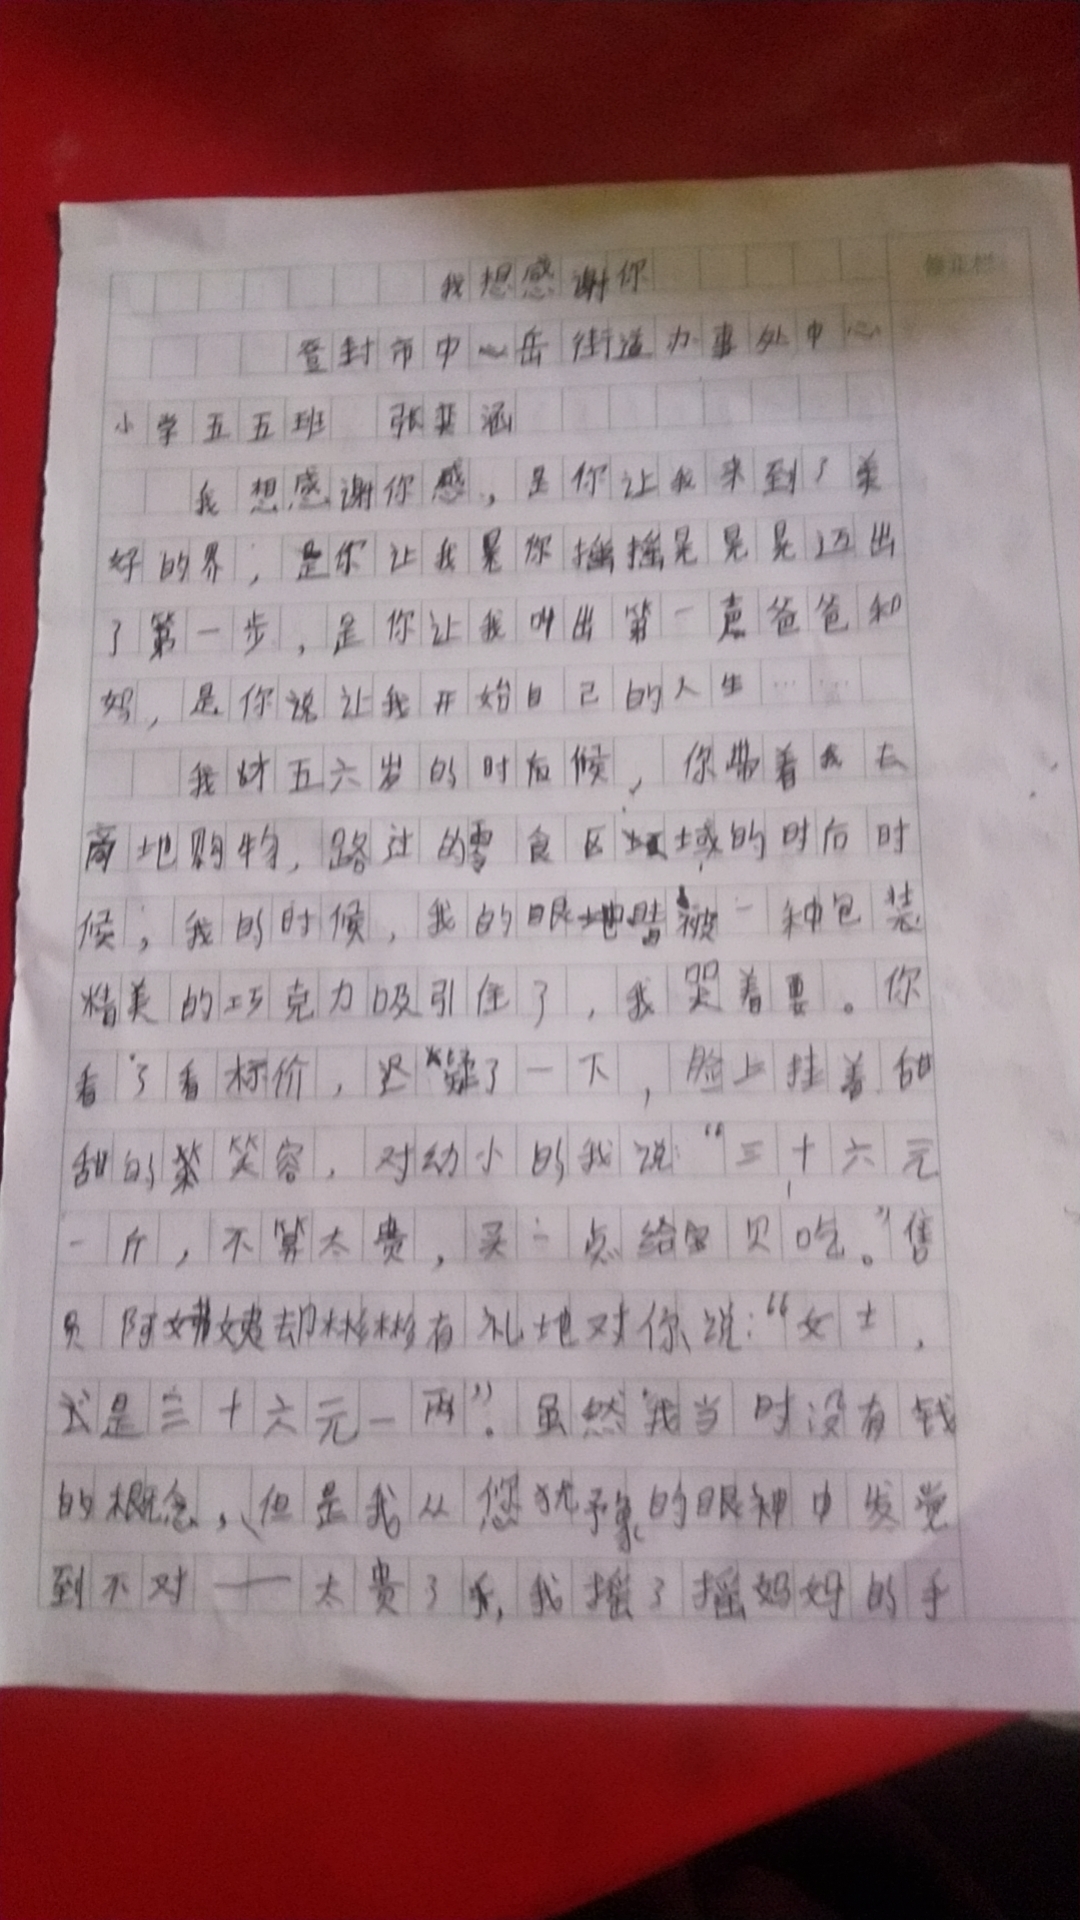 我想感谢你
登封市中心岳街道办事处中心
小学五五班 张奕涵
我想感谢你感，是你让我来到了美
好的界，是你让我晃你摇摇晃晃晃迈出
了第一步，是你让我叫出第一声爸爸和
妈，是你说让我开始自己的人生……
我才五六岁的时后候，你带着我去
商地购物，路过的零食区域的时后时
候，我的时候，我的眼睛被一种包装
精美的巧克力吸引住了，我哭着要。你
看了看标价，迟疑了一下，脸上挂着甜
甜的笑容，对幼小的我说：“三十六元
一斤，不算太贵，买一点给宝贝吃。”售
员阿姨姨却彬彬有礼地对你说：“女士，
式是三十六元一两”。虽然我当时没有钱
的概念，但是我从您犹豫的眼神中发觉
到不对——太贵了，我摇了摇妈妈的手